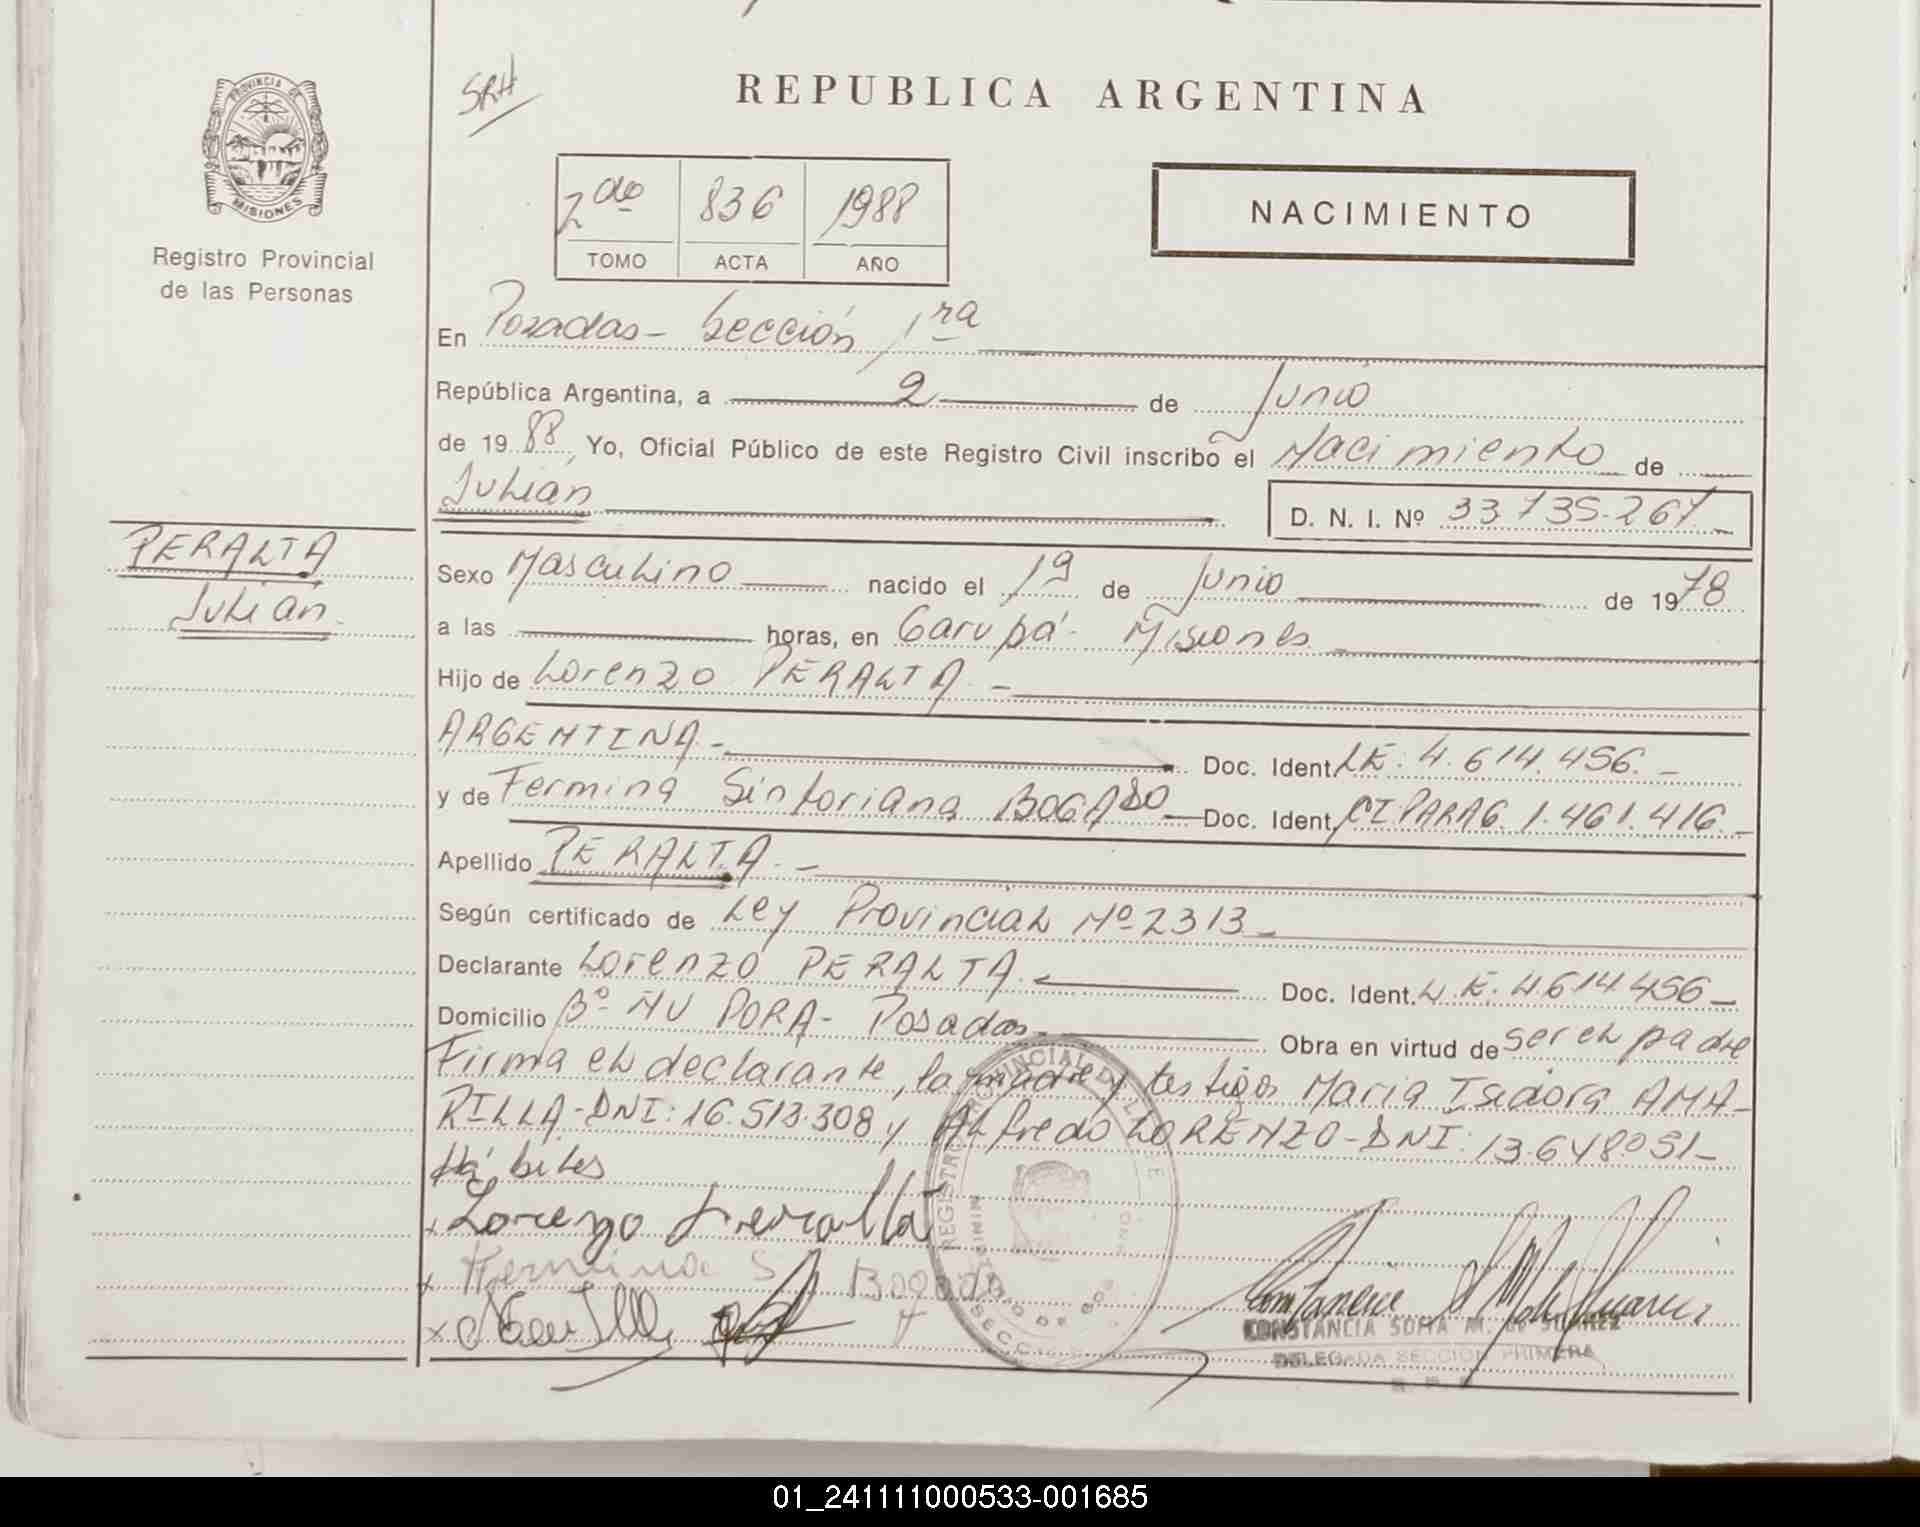 PROVINCIA DE
MISIONES
Registro Provincial
de las Personas
PERALTA
Julián.
SRH
REPUBLICA ARGENTINA
2do 836 1988
TOMO ACTA AÑO
NACIMIENTO
En Posadas - Sección 1ra
República Argentina, a 2 de Junio
de 1988, Yo, Oficial Público de este Registro Civil inscribo el Nacimiento de
Julián D. N. I. Nº 33.735.267
Sexo Masculino nacido el 19 de Junio de 1978
a las horas, en Garupá - Misiones
Hijo de Lorenzo PERALTA -
ARGENTINA - Doc. Ident. LE. 4.614.456. -
y de Fermina Sintoriana BOGADO Doc. Ident. CI PARAG. 1.461.416. -
Apellido PERALTA. -
Según certificado de Ley Provincial Nº 2313 -
Declarante Lorenzo PERALTA. Doc. Ident. L.E. 4614456 -
Domicilio Bº ÑU PORA - Posadas - Obra en virtud de ser el padre
Firma el declarante, la madre y testigos Maria Isidora AMA-
RILLA - DNI: 16.513.308 y Alfredo LORENZO - DNI: 13.648051 -
Hábiles
x Lorenzo Peralta
x Hermina S Bogado
x
CONSTANCIA SOFIA M. de SUAREZ
DELEGADA SECCION PRIMERA
R. P. P.
01_241111000533-001685